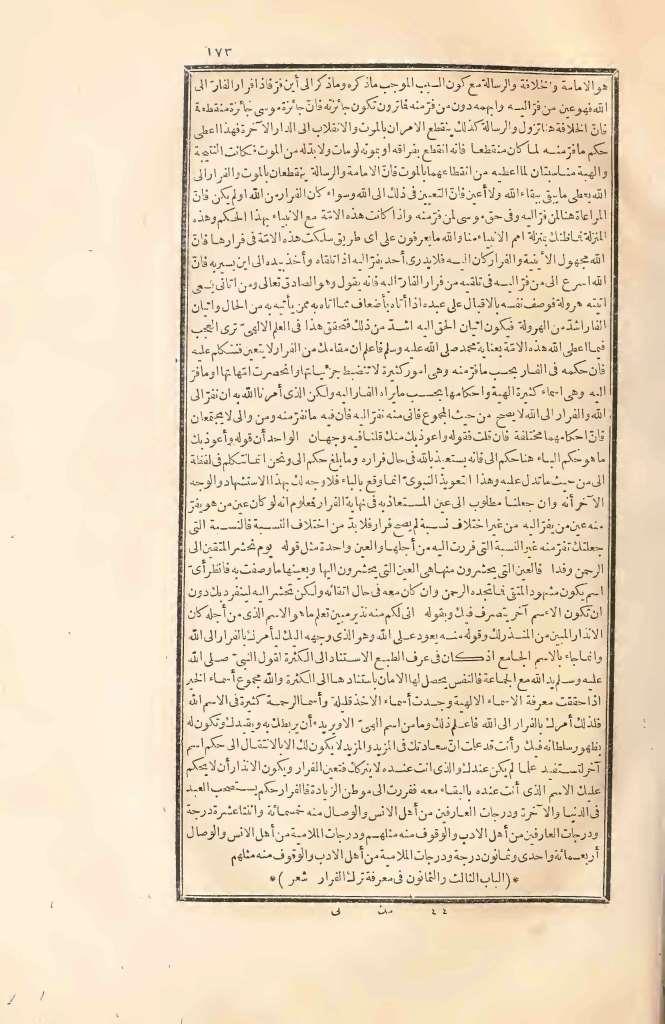 ١٧٣
هو الامامة والخلافة والرسالة مع كون السبب الموجب ماذكره وماذكر الى أين فر فاذا فرار الفار الى
الله فهو عين من فر اليه وابهمه دون من فر منه فافرون تكون جائزته فان جائزة موسى جائزة منقطعة
فان الخلافة هنا تزول والرسالة كذلك ينقطع الامران بالموت والانقلاب الى الدار الآخرة فهذا اعطى
حكم ما فر منه لما كان منقطعا فانه انقطع بفراقه او بموته لو مات ولابد له من الموت فكانت النتيجة
والهبة مناسبتان لما اعطيه من انقطاعهما بالموت فان الامامة والرسالة ينقطعان بالموت والفرار الى
الله يعطى ما يبقى ببقاء الله ولا أعين فان التعيين فى ذلك الى الله وسواء كان الفرار من الله او لم يكن فان
المراعاة هنا لمن فر اليه وفى حق موسى لمن فر منه واذا كانت هذه الامة مع الانبياء بهذا الحكم وهذه
المنزلة فما ظنك بمنزلة امم الانبياء منا والله ما يعرفون على اى طريق سلكت هذه الامة فى فرارها فان
الله مجهول الأينية والفرار كان اليه فلا يدرى أحد يفر اليه اذا تلقاه وأخذ بيده الى اين يسير به فان
الله اسرع الى من فر اليه فى تلقيه من فرار الفار اليه فانه يقول وهو الصادق تعالى ومن اتانى يسعى
اتيته هرولة فوصف نفسه بالاقبال على عبده اذا أتاه بأضعاف مما اتاه به ممن يأتيه به من الحال واتيان
الفار اشد من الهرولة فيكون اتيان الحق اليه اشد من ذلك فتحقق هذا فى العلم الالهى ترى العجب
فيما اعطى الله هذه الامة بعناية محمد صلى الله عليه وسلم فاعلم ان مقامك من الفرار لا يتعين فنتكلم عليه
فان حكمه فى الفار بحسب ما فر منه وهى امور كثيرة لا تنضبط جزئياتها وانحصرت امهاتها وما فر
اليه وهى اسماء كثيرة الهية واحكامها بحسب ما يراه الفار اليه ولكن الذى أمرنا الله به ان نفر الى
الله والفرار الى الله لا يصح من حيث المجموع فانى منه نفر اليه فان فيه ما نفر منه ومن والى لا يجتمعان
فان احكامهما مختلفة فان قلت فقوله واعوذ بك منك قلنا فيه وجهان الواحد أن قوله وأعوذ بك
ما هو حكم الباء هنا حكم الى فانه يستعيذ بالله فى حال فراره وما بلغ حكم الى ونحن انما نتكلم فى لفظة
الى من حيث ما تدل عليه وهذا التعويذ النبوى انما وقع بالباء فلا وجه لك بهذا الاستشهاد والوجه
الآخر أنه وان جعلنا مطلوب الى عين المستعاذ به فى نهاية الفرار فعلوم انه لو كان عين من هو يفر
منه عين من يفر اليه من غير اختلاف نسبة لم يصح فرار فلابد من اختلاف النسبة فالنسبة التى
جعلتك تفر منه غير النسبة التى فررت اليه من أجلها والعين واحدة مثل قوله يوم نحشر المتقين الى
الرحمن وفدا فالعين التى يحشرون منها هى العين التى يحشرون اليها وبعينها ما وصفت به فانظر أى
اسم يكون مشهود المتقى فما تجده الرحمن وان كان معه فى حال اتقائه ولكن تحشر اليه لينفرد بك دون
ان تكون لاسم آخر يتصرف فيك وبقوله انى لكم منه نذير مبين تعلم ما هو الاسم الذى من أجله كان
الانذار المبين من المنذر لك وقوله منه يعود على الله وهو الذى وجهه اليك ليأمرك بالفرار الى الله
وانما جاء بالاسم الجامع اذ كان فى عرف الطبع الاستناد الى الكثرة لقول النبى صلى الله
عليه وسلم يد الله مع الجماعة فالنفس يحصل لها الامان باستنادها الى الكثرة والله مجموع أسماء الخير
اذا حققت معرفة الاسماء الالهية وجدت أسماء الاخذ قليلة وأسماء الرحمة كثيرة فى الاسم الله
فلذلك أمرك بالفرار الى الله فاعلم ذلك وما من اسم الهى الا ويريد أن يربطك به ويقيدك وتكون له
بظهور سلطانه فيك وأنت قد علمت ان سعادتك فى المزيد والمزيد لا يكون لك الا بالانتقال الى حكم اسم
آخر لتستفيد علما لم يكن عندك والذى انت عنده لا يتركك فتعين الفرار ويكون الانذار أن لا يحكم
عليك الاسم الذى أنت عنده بالبقاء معه ففررت الى موطن الزيادة فالفرار حكم يستصحب العبد
فى الدنيا والآخرة ودرجات العارفين من أهل الانس والوصال منه خمسمائة واثنتا عشرة درجة
ودرجات العارفين من أهل الادب والوقوف منه مثلهم ودرجات الملامية من أهل الانس والوصال
أربعمائة واحدى وثمانون درجة ودرجات الملامية من أهل الادب والوقوف منه مثلهم
* (الباب الثالث والثمانون فى معرفة ترك الفرار شعر) *
٤٤ مك نى